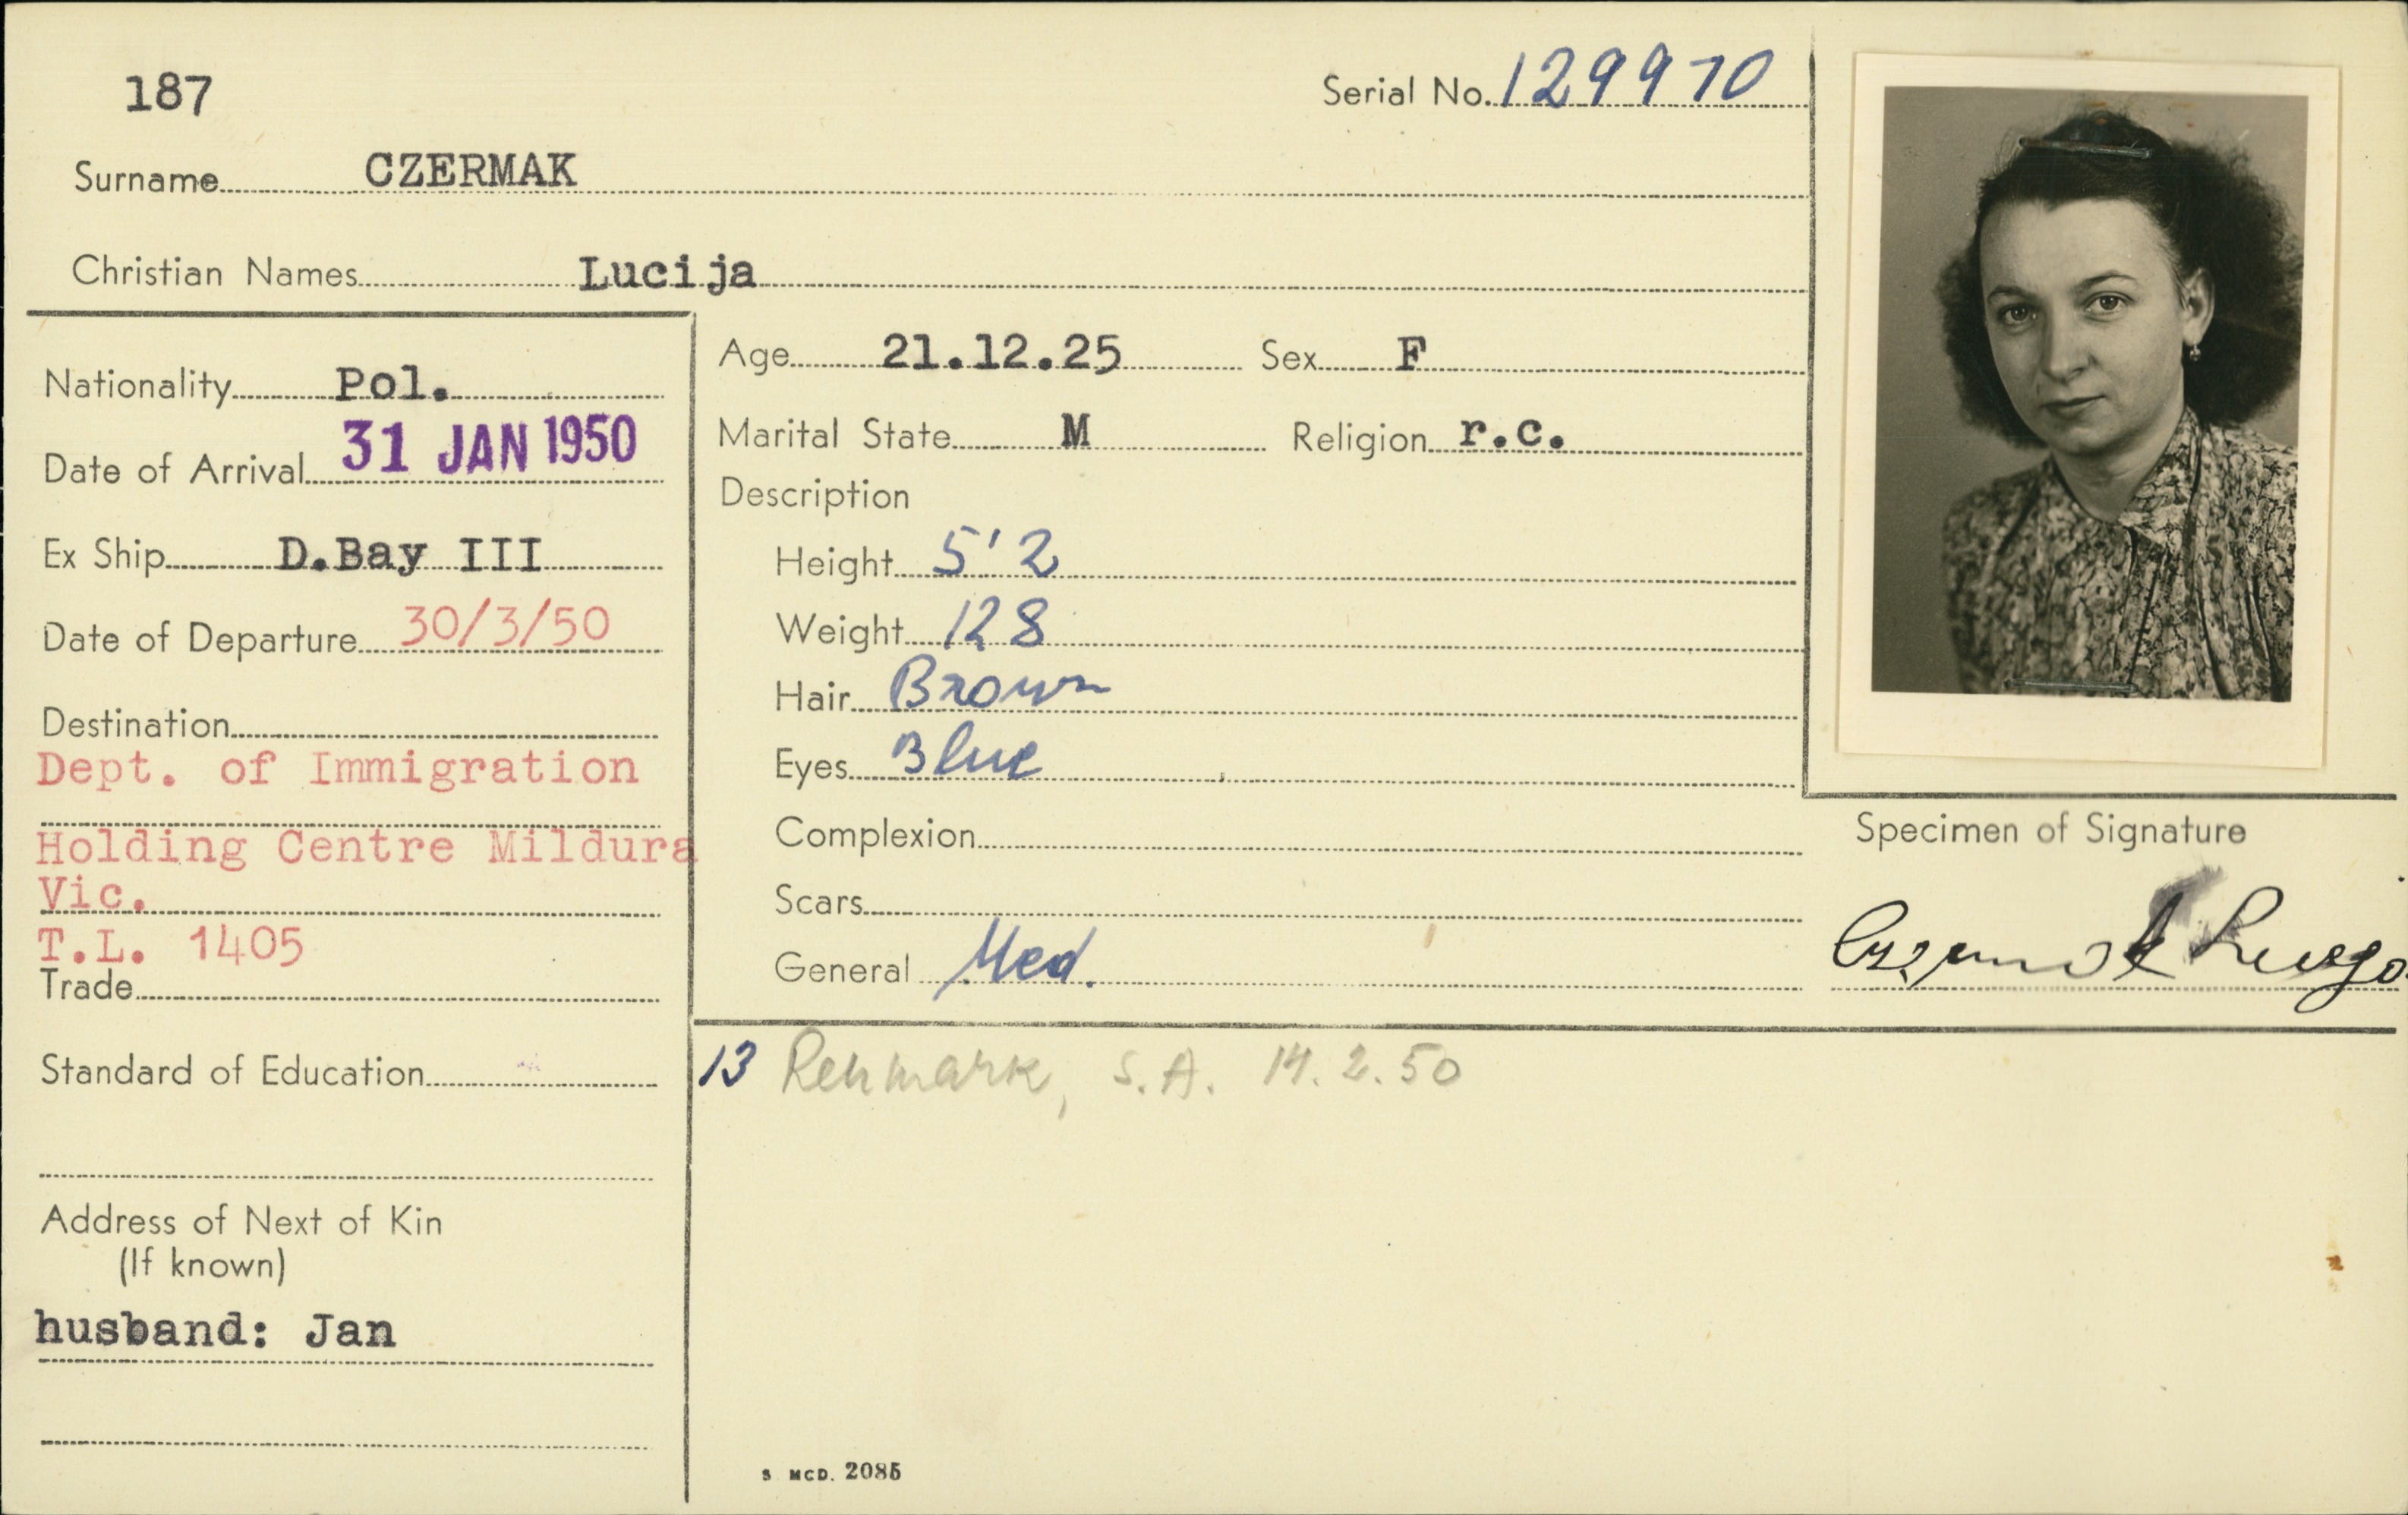 187
Serial No. 129970
Surname CZERMAK
Christian Names Lucija
Nationality Pol.
Date of Arrival 31 JAN 1950
Ex Ship D.Bay III
Date of Departure 30/3/50
Destination
Dept. of Immigration
Holding Centre Mildura
Vic.
T.L. 1405
Trade
Standard of Education
Address of Next of Kin
(If known)
husband: Jan
Age 21.12.25 Sex F
Marital State M Religion r.c.
Description
Height 5'2
Weight 128
Hair Brown
Eyes Blue
Complexion
Scars
General Med.
Specimen of Signature
Czermak
13 Renmark, S.A. 14.2.50
S MCD. 2085